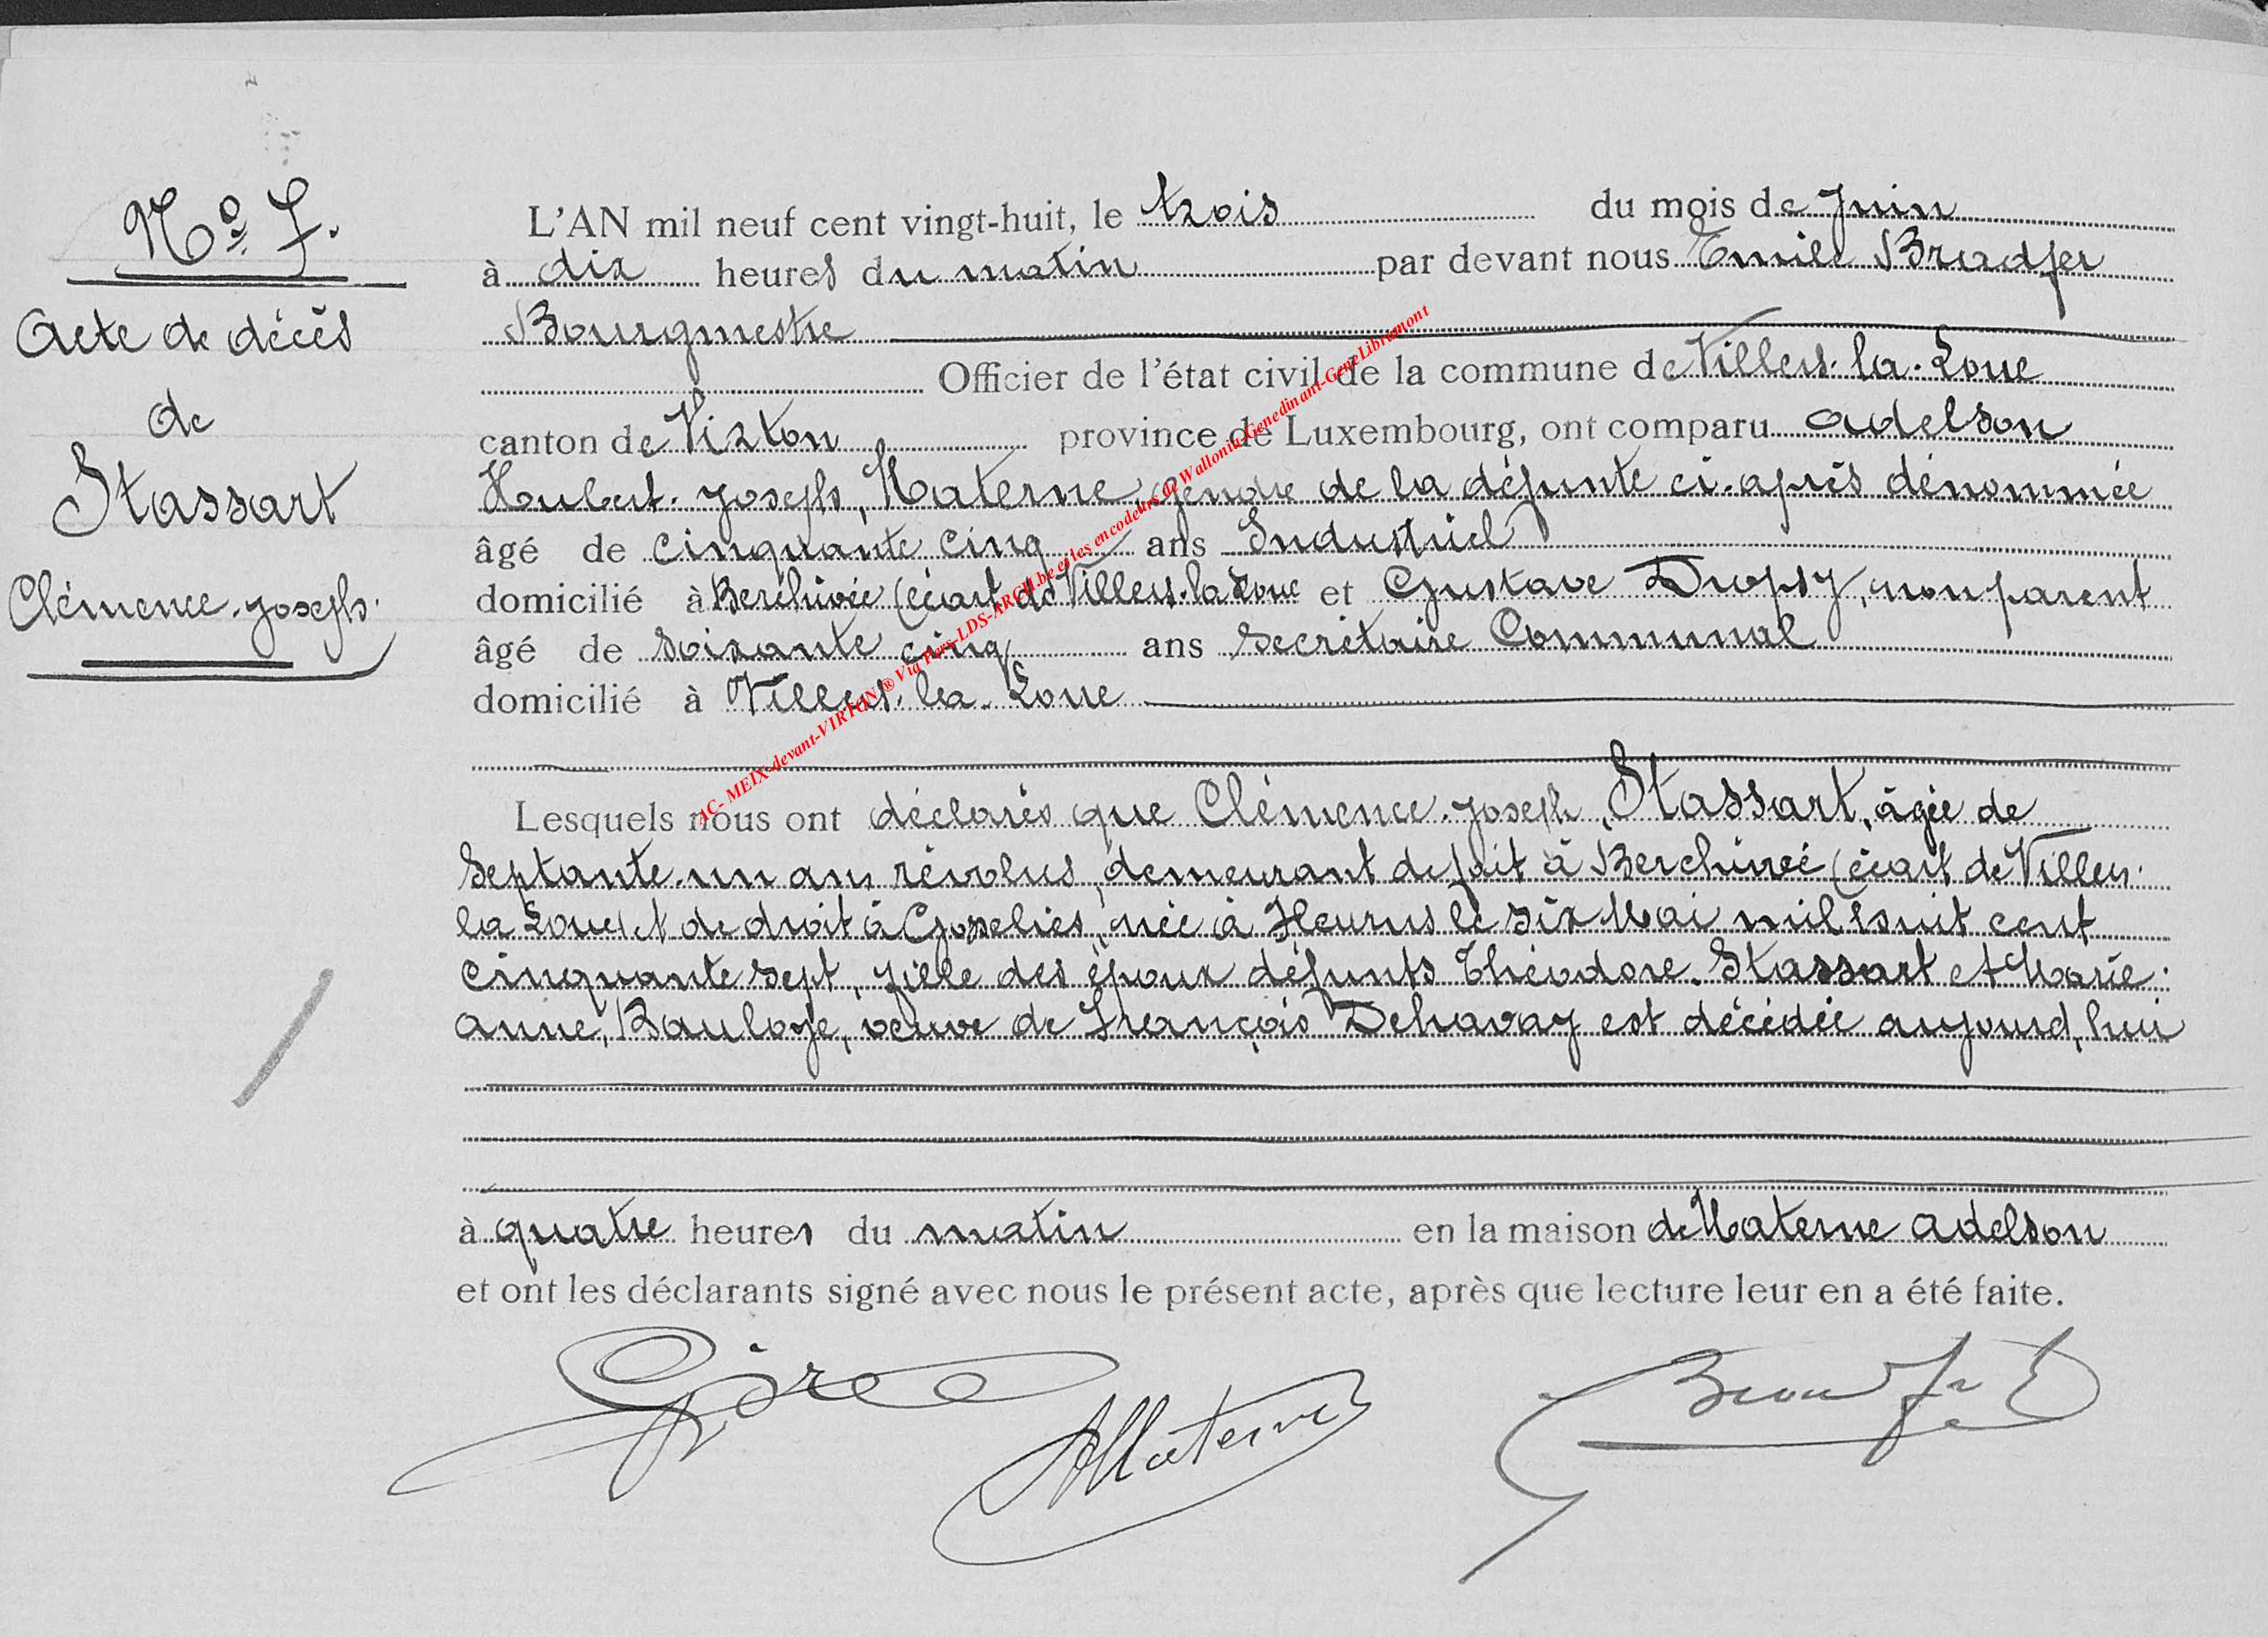 Nº 7.
Acte de décès
de
Stassart
Clémence-Joseph.
L'AN mil neuf cent vingt-huit, le trois du mois de Juin
à dix heures du matin par devant nous Emile Bradfer
Bourgmestre
Officier de l'état civil de la commune de Villers-la-Loue
canton de Virton province de Luxembourg, ont comparu Adelson
Hubert-Joseph, Materne, gendre de la défunte ci-après dénommée
âgé de cinquante cinq ans Industriel
domicilié à Berchivée (écart de Villers-la-Loue et Gustave Dropsy, non parent
âgé de soixante cinq ans secrétaire Communal
domicilié à Villers-la-Loue
Lesquels nous ont déclarés que Clémence-Joseph, Stassart, âgée de
septante-un ans révolus, demeurant de fait à Berchiveé (écart de Villers-
la Loue) et de droit à Gosselies, née à Fleurus le six Mai mil huit cent
cinquante sept, fille des époux défunts Théodore Stassart et Marie-
Anne, Bauloye, veuve de François Dehavay est décédée aujourd'hui
à quatre heures du matin en la maison de Materne Adelson
et ont les déclarants signé avec nous le présent acte, après que lecture leur en a été faite.
AMaterne
Bradfer E
AC- MEIX-devant-VIRTON ® Via Pers-LDS-ARCH.be et les encodeurs de Wallonia-Genedinant-GeneLibramont